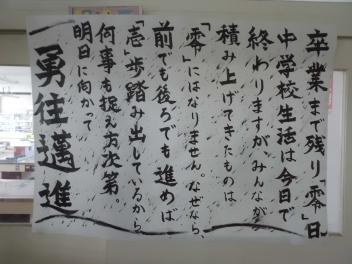 卒業まで残り「零」日
中学校生活は今日で
終わりますが、みんなが
積み上げてきたものは
「零」にはなりません。なぜなら、
前でも後ろでも進めば
「壱」歩踏み出しているから
何事も捉え方次第。
明日に向かって
一勇往邁進